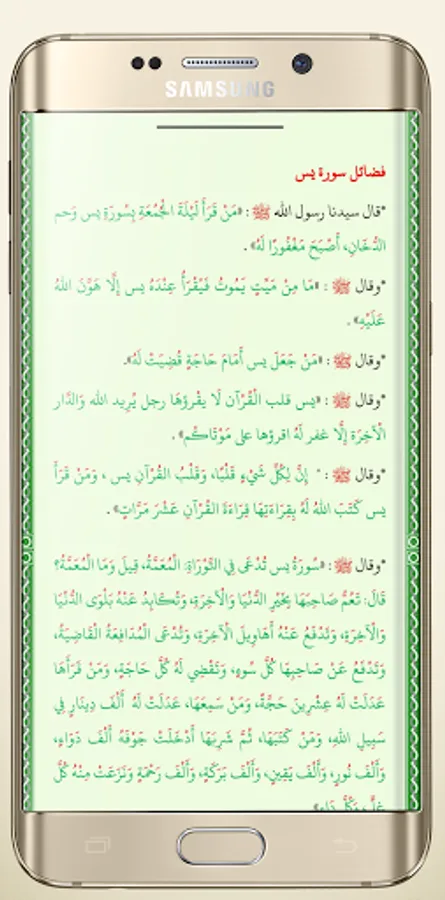 SAMSUNG
فضائل سورة يس
*قال سيدنا رسول الله ﷺ : «مَنْ قَرَأَ لَيْلَةَ الْجُمُعَةِ بِسُورَةِ يس وَحم
الدُّخَانِ، أَصْبَحَ مَغْفُورًا لَهُ» .
*وقال ﷺ : «مَا مِنْ مَيِّتٍ يَمُوتُ فَيُقْرَأُ عِنْدَهُ يس إِلَّا هَوَّنَ اللهُ
عَلَيْهِ» .
*وقال ﷺ : «مَنْ جَعَلَ يس أَمَامَ حَاجَةٍ قُضِيَتْ لَهُ».
*وقال ﷺ : «يس قلب الْقُرْآن لَا يقْرؤهَا رجل يُرِيد الله وَالدَّار
الْآخِرَة إِلَّا غفر لَهُ اقرؤها على مَوْتَاكُم» .
*وقال ﷺ : " إِنَّ لِكُلِّ شَيْءٍ قَلْبًا، وَقَلْبُ القُرْآنِ يس ، وَمَنْ قَرَأَ
يس كَتَبَ اللهُ لَهُ بِقِرَاءَتِهَا قِرَاءَةَ القُرْآنِ عَشْرَ مَرَّاتٍ» .
*وقال ﷺ : «سُورَةُ يس تُدْعَى فِي التَّوْرَاةِ: الْمُعَمَّةُ، قِيلَ وَمَا الْمُعَمَّةُ؟
قَالَ: تَعُمُّ صَاحِبَهَا بِخَيْرِ الدُّنْيَا وَالْآخِرَةِ، وَتُكَابِدُ عَنْهُ بَلْوَى الدُّنْيَا
وَالْآخِرَةِ، وَتَدْفَعُ عَنْهُ أَهَاوِيلَ الْآخِرَةِ، وَتُدْعَى الْمُدَافِعَةُ الْقَاضِيَةُ،
وَتَدْفَعُ عَنْ صَاحِبِهَا كُلَّ سُوءٍ، وَتَقْضِي لَهُ كُلَّ حَاجَةٍ، وَمَنْ قَرَأَهَا
عَدَلَتْ لَهُ عِشْرِينَ حَجَّةً، وَمَنْ سَمِعَهَا، عَدَلَتْ لَهُ أَلْفَ دِينَارٍ فِي
سَبِيلِ اللهِ، وَمَنْ كَتَبَهَا، ثُمَّ شَرِبَهَا أَدْخَلَتْ جَوْفَهُ أَلْفَ دَوَاءٍ،
وَأَلْفَ نُورٍ، وَأَلْفَ يَقِينٍ، وَأَلْفَ بَرَكَةٍ، وَأَلْفَ رَحْمَةٍ وَنَزَعَتْ مِنْهُ كُلَّ
غِلٍّ، وَكُلَّ دَاءٍ»